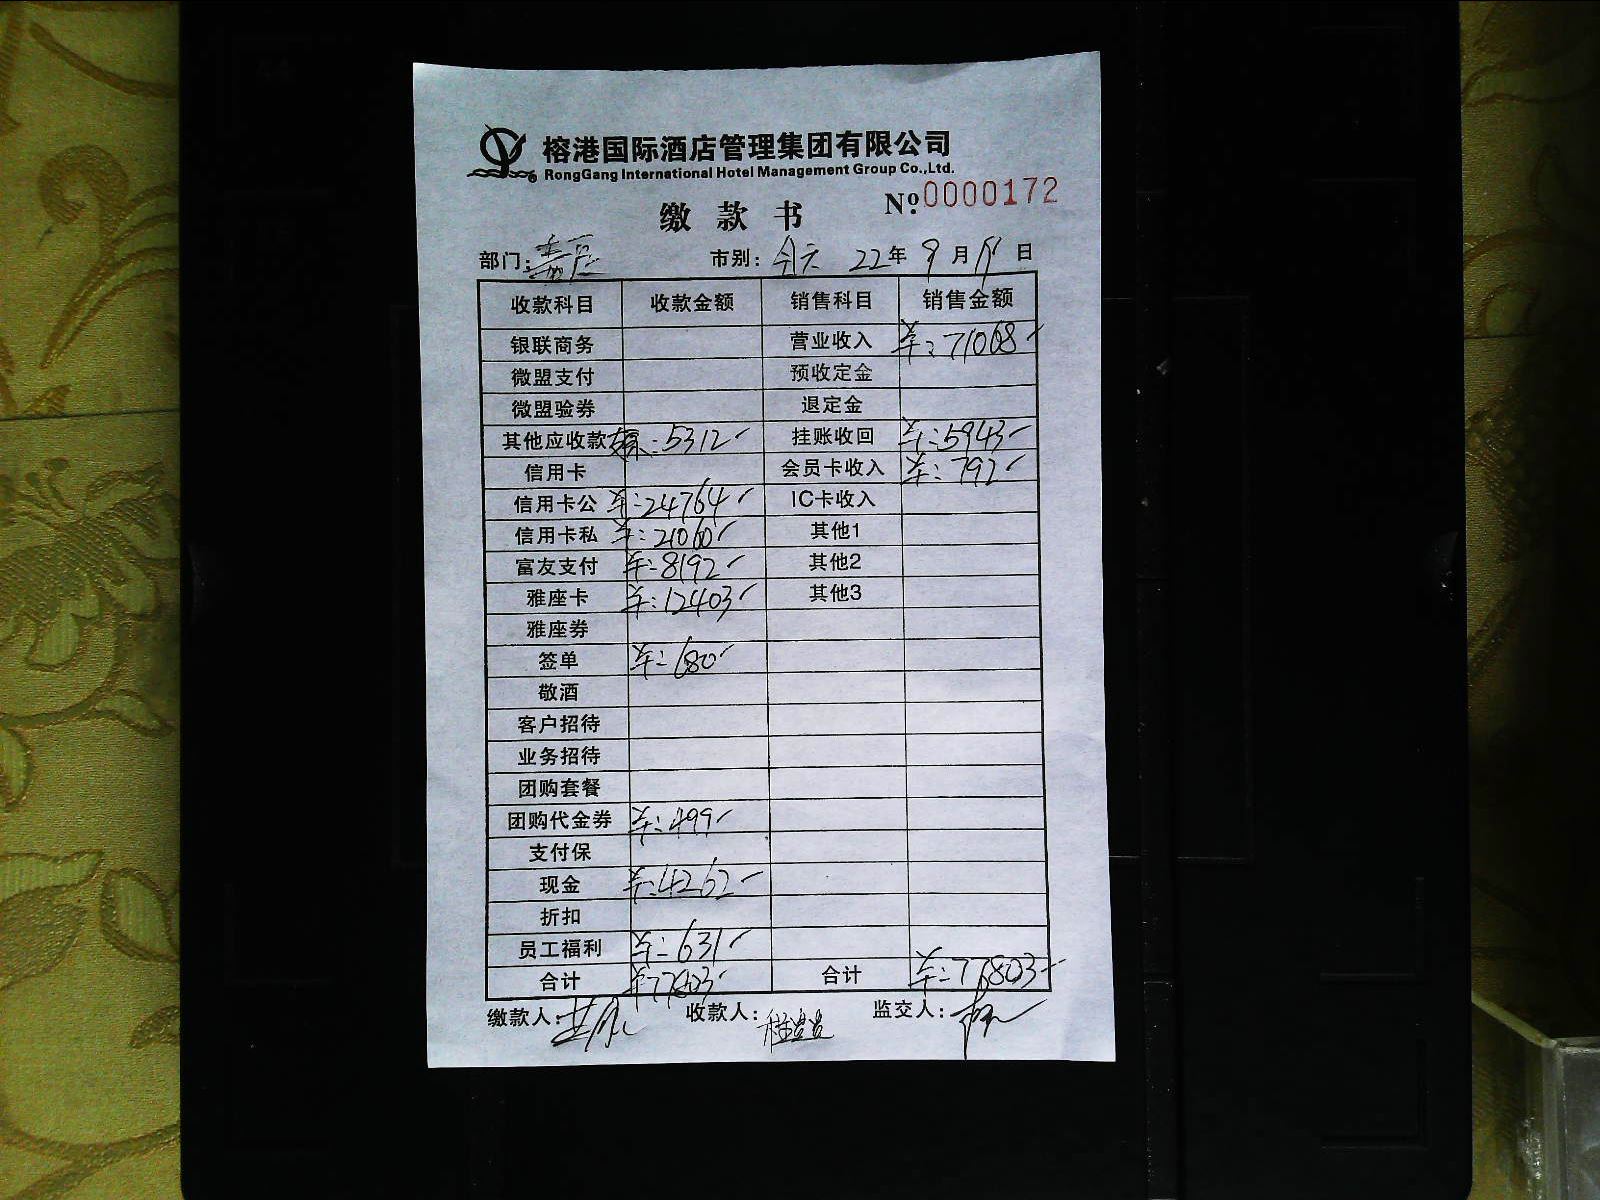 榕港国际酒店管理集团有限公司
RongGang International Hotel Management Group Co.,Ltd.
缴款书 №.0000172
部门: 市别: 22年9月 日
收款科目 收款金额 销售科目 销售金额
银联商务 营业收入 ¥:71068
微盟支付 预收定金
微盟验券 退定金
其他应收款 ¥:5312 挂账收回 ¥:5943
信用卡 会员卡收入 ¥:792
信用卡公 ¥:24764 IC卡收入
信用卡私 ¥:21060 其他1
富友支付 ¥:8192 其他2
雅座卡 ¥:12403 其他3
雅座券
签单 ¥:680
敬酒
客户招待
业务招待
团购套餐
团购代金券 ¥:499
支付保
现金 ¥:4262
折扣
员工福利 ¥:631
合计 ¥77803 合计 ¥:77803
缴款人: 收款人: 监交人: